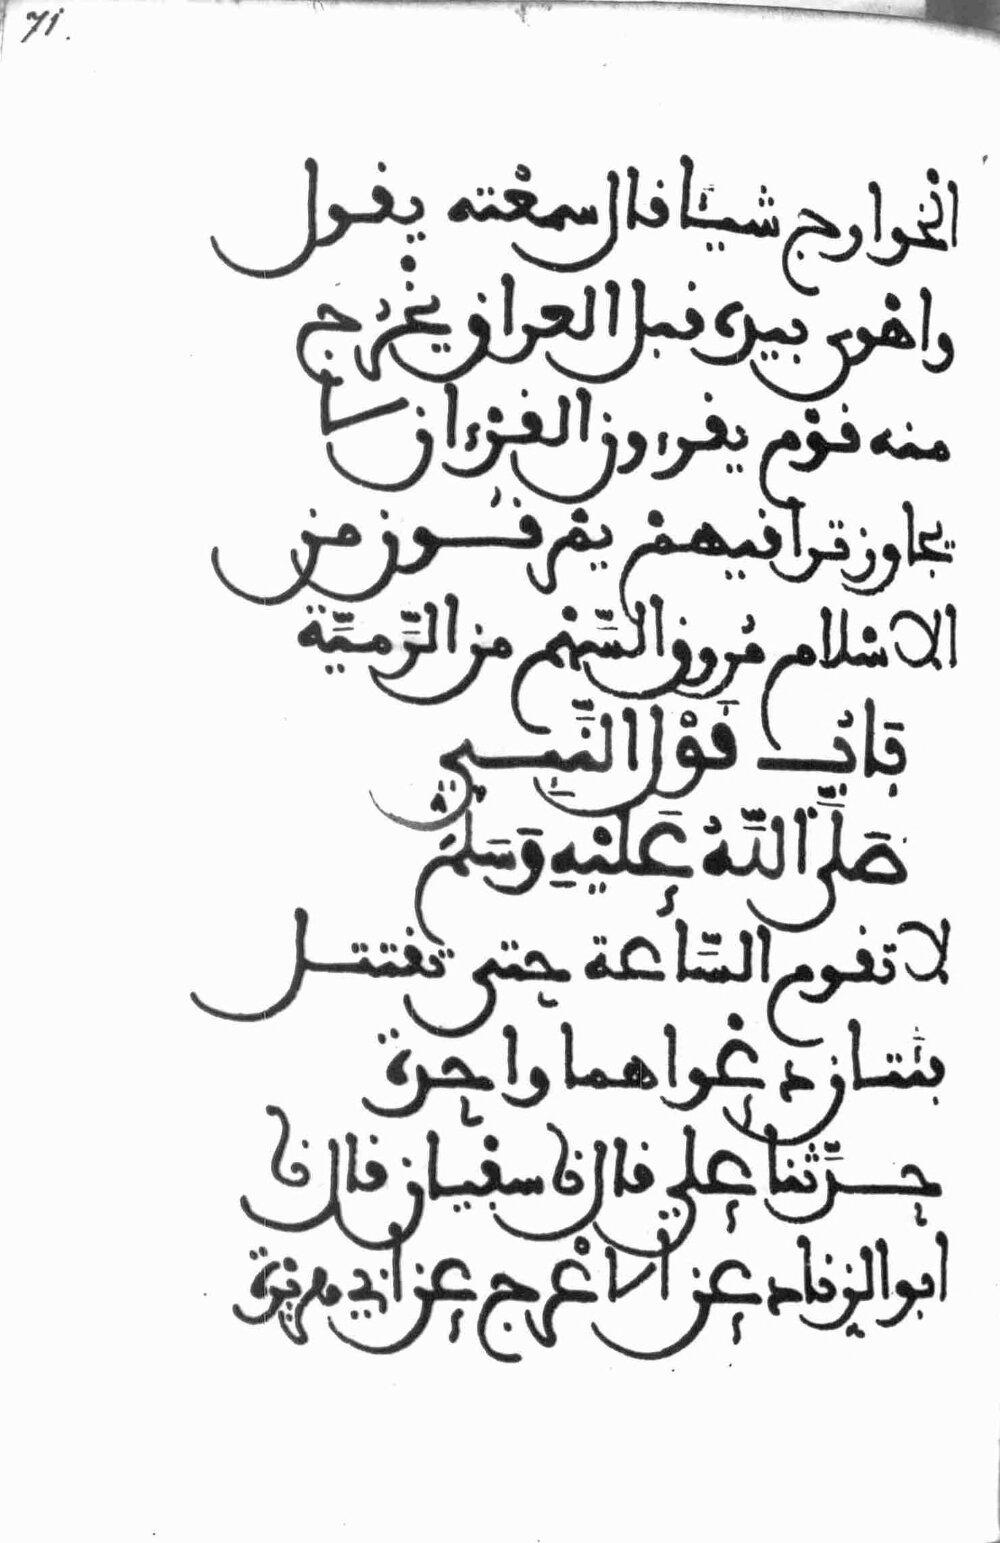 71.
الخوارج شيئا قال سمعته يقول
واهوى بيده قبل العراق يخرج
منه قوم يقرءون القرءان لا
يجاوز تراقيهم يمرقون من
الاسلام مروق السهم من الرَّميَّة
بَابُ قَوْلِ النَّبِيِّ
صَلَّى اللَّهُ عَلَيْهِ وَسَلَّمَ
لا تقوم السَّاعة حتى تقتتل
فئتان دعواهما واحدة
حدَّثنا علي قال نا سفيان قال نا
ابو الزناد عن الاعرج عن ابي هريرة